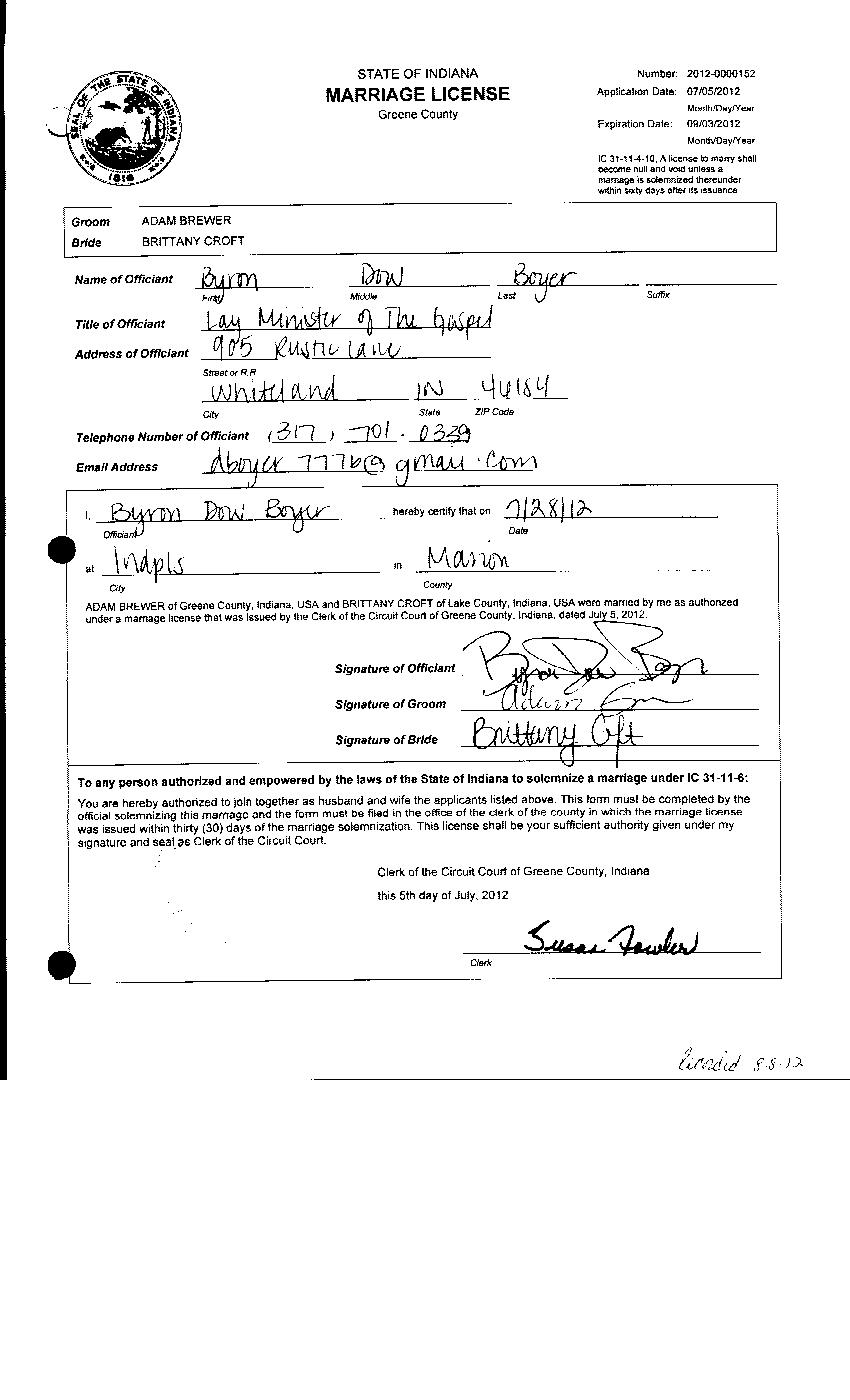 SEAL OF THE STATE OF INDIANA
1816
STATE OF INDIANA
MARRIAGE LICENSE
Greene County
Number: 2012-0000152
Application Date: 07/05/2012
Month/Day/Year
Expiration Date: 09/03/2012
Month/Day/Year
IC 31-11-4-10, A license to marry shall
become null and void unless a
marriage is solemnized thereunder
within sixty days after its issuance
Groom ADAM BREWER
Bride BRITTANY CROFT
Name of Officiant Byron Dow Boyer
First Middle Last Suffix
Title of Officiant Lay Minister of The Gospel
Address of Officiant 905 Rustic Lane
Street or R.R
Whiteland IN 46184
City State ZIP Code
Telephone Number of Officiant (317) 701-0339
Email Address dboyer7776@gmail.com
I, Byron Dow Boyer hereby certify that on 7/28/12
Officiant Date
at Indpls in Marion
City County
ADAM BREWER of Greene County, Indiana, USA and BRITTANY CROFT of Lake County, Indiana, USA were married by me as authorized
under a marriage license that was issued by the Clerk of the Circuit Court of Greene County, Indiana, dated July 5, 2012.
Signature of Officiant Byron Dow Boyer
Signature of Groom Adam
Signature of Bride Brittany Croft
To any person authorized and empowered by the laws of the State of Indiana to solemnize a marriage under IC 31-11-6:
You are hereby authorized to join together as husband and wife the applicants listed above. This form must be completed by the
official solemnizing this marriage and the form must be filed in the office of the clerk of the county in which the marriage license
was issued within thirty (30) days of the marriage solemnization. This license shall be your sufficient authority given under my
signature and seal as Clerk of the Circuit Court.
Clerk of the Circuit Court of Greene County, Indiana
this 5th day of July, 2012
Susan Fowler
Clerk
8-8-12